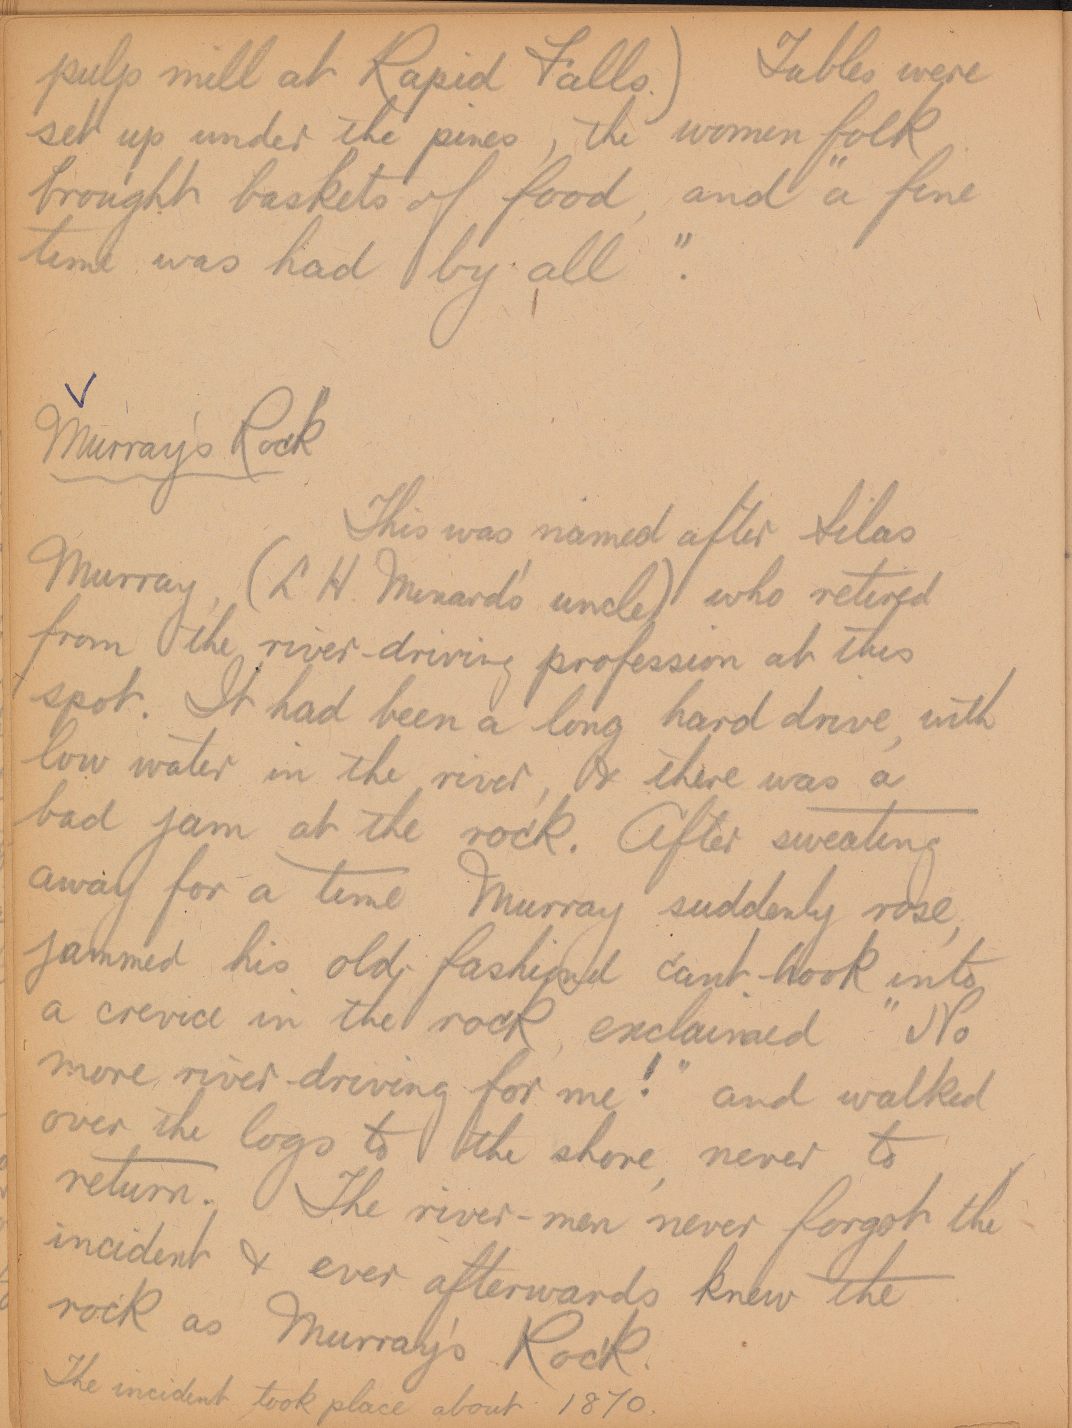 pulp mill at Rapid Falls.) Tables were
set up under the pines, the women folk
brought baskets of food, and "a fine
time was had by all".
Murray's Rock
This was named after Silas
Murray, (L H. Menard's uncle) who retired
from the river-driving profession at this
spot. It had been a long hard drive, with
low water in the river, & there was a
bad jam at the rock. After sweating
away for a time Murray suddenly rose,
jammed his old, fashiond cant-hook into
a crevice in the rock, exclaimed "No
more river-driving for me!" and walked
over the logs to the shore, never to
return. The river-men never forgot the
incident & ever afterwards knew the
rock as Murray's Rock.
The incident took place about 1870.